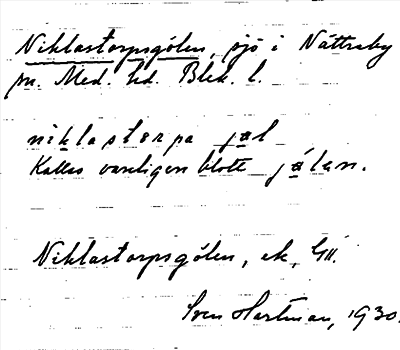 Niklastorpsgölen, sjö i Nättraby
sn. Med. hd. Blek. l.
niklastorpa jøl
Kallas vanligen blott jølen.
Niklastorpsgölen, ek,
Sven Hartman, 1930.